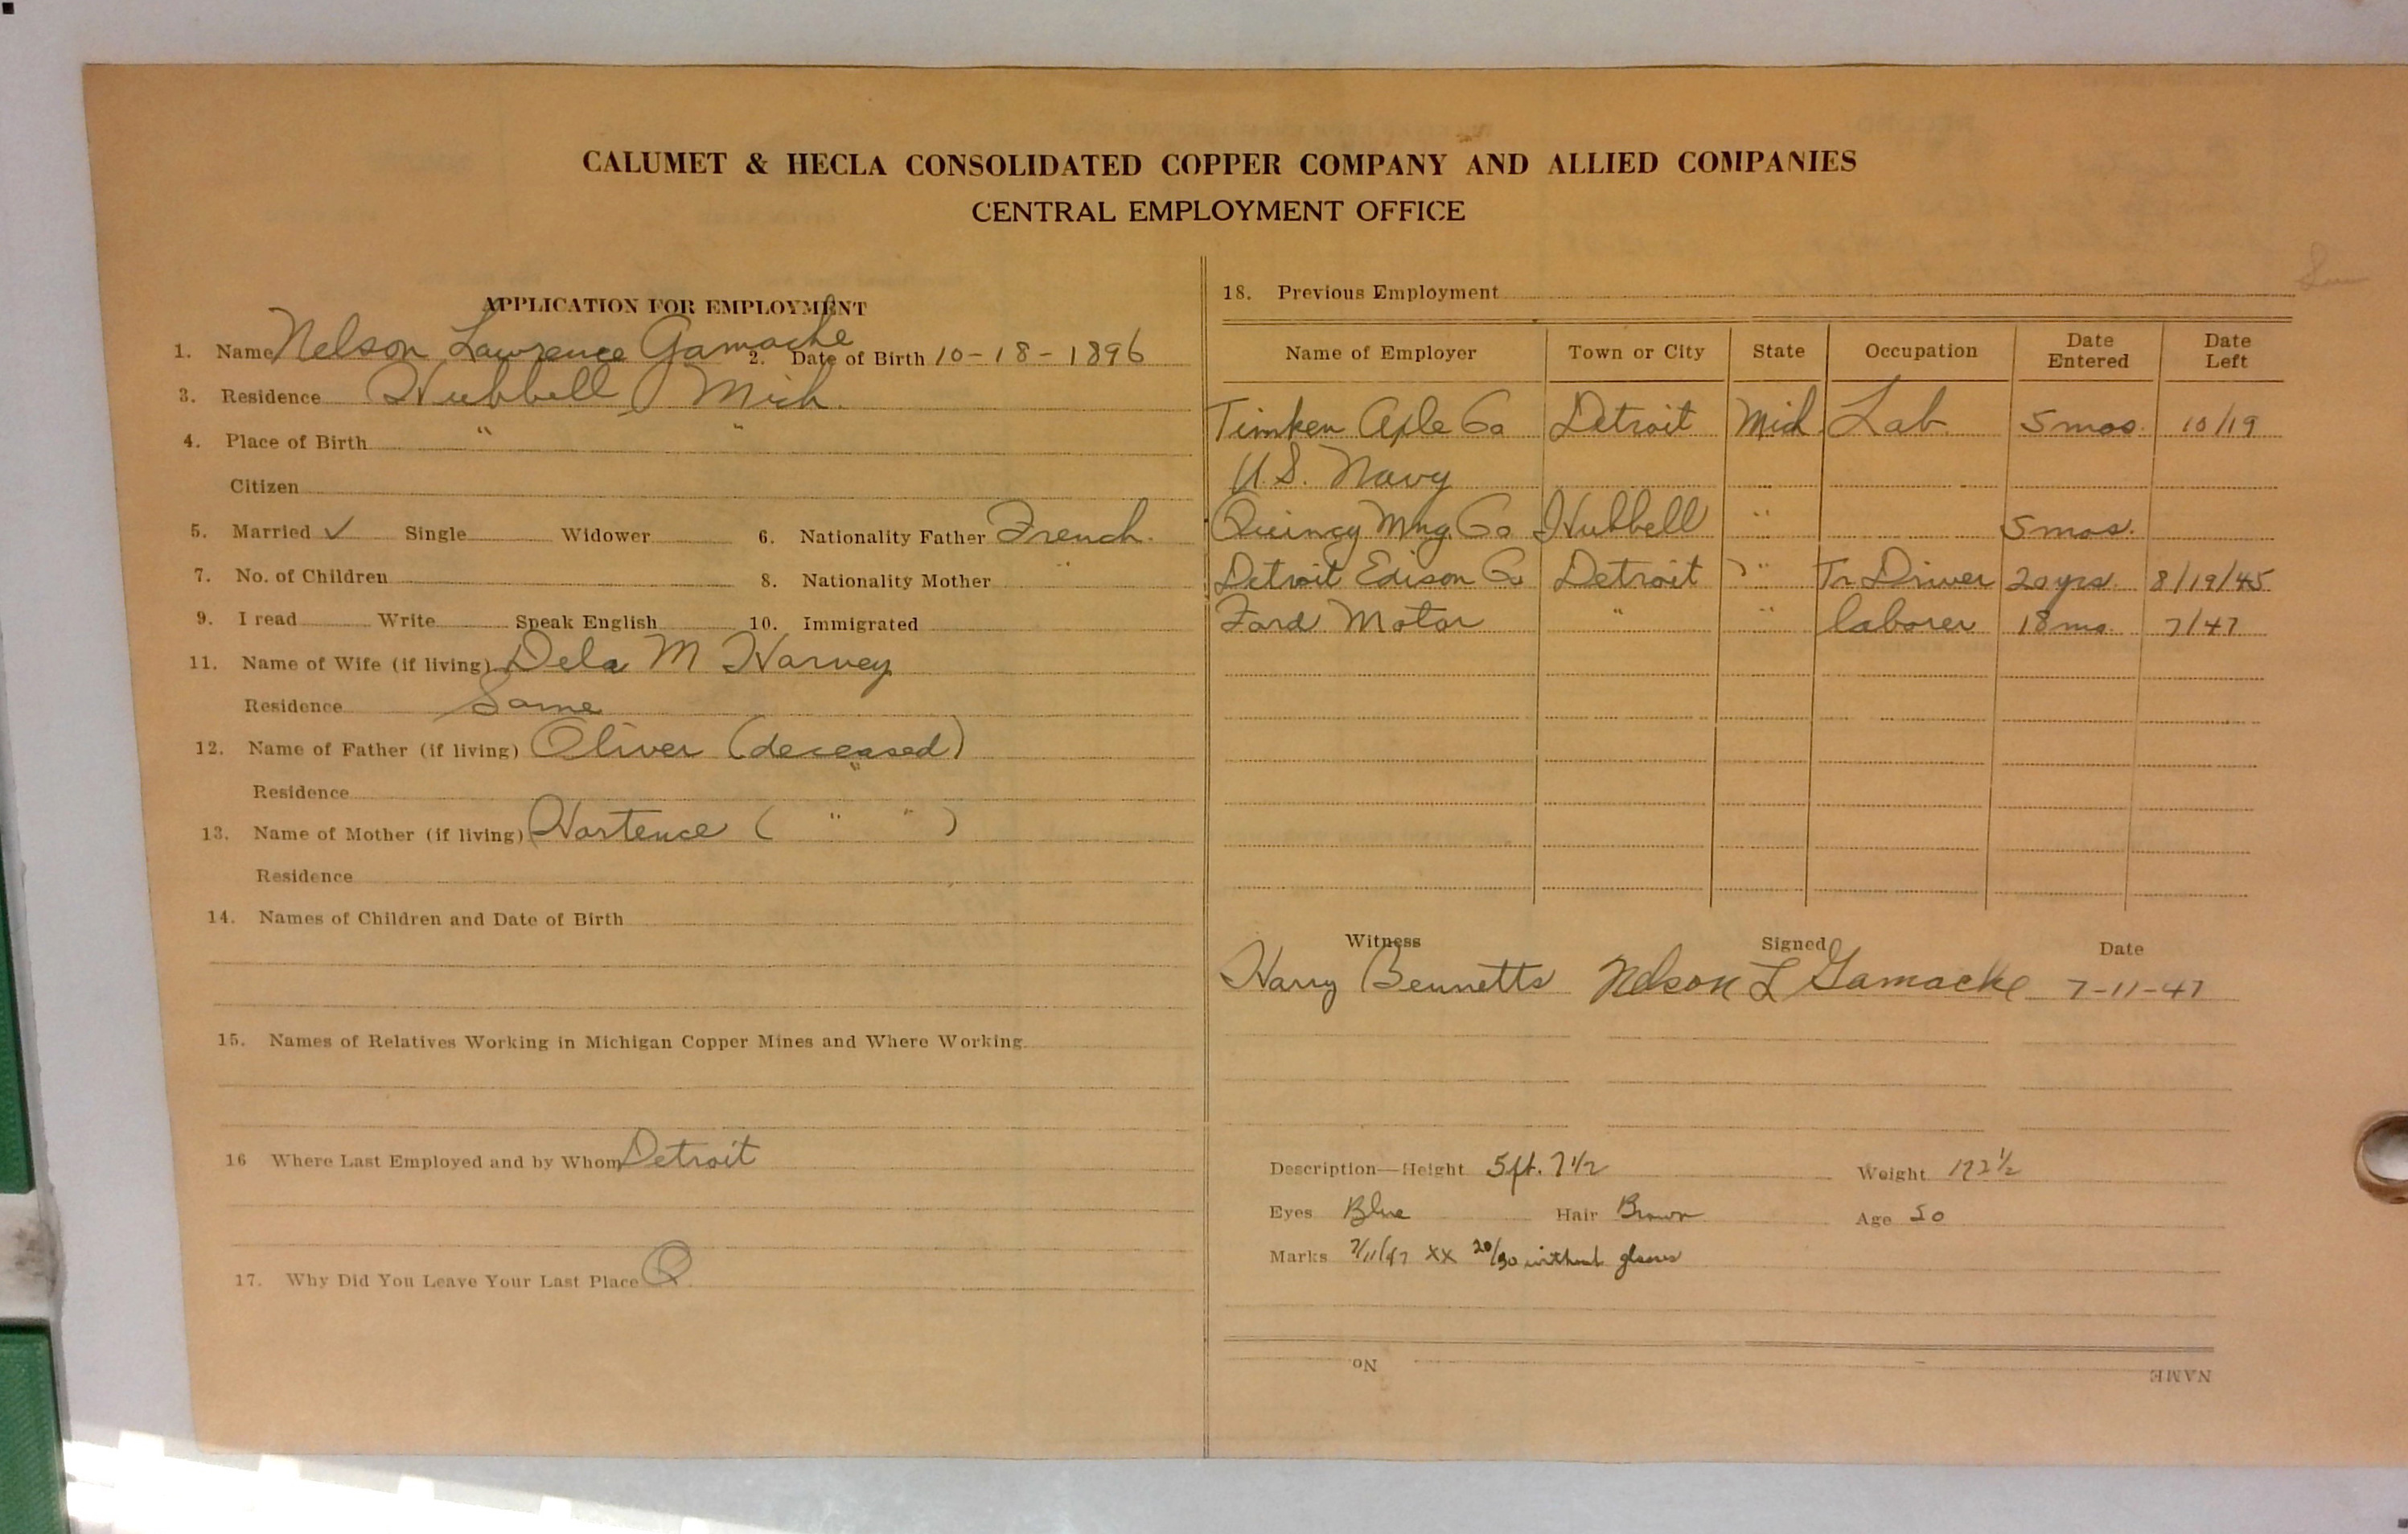 CALUMET & HECLA CONSOLIDATED COPPER COMPANY AND ALLIED COMPANIES
CENTRAL EMPLOYMENT OFFICE
APPLICATION FOR EMPLOYMENT
1. Name Nelson Lawrence Gamache 2. Date of Birth 10-18-1896
3. Residence Hubbell, Mich.
4. Place of Birth " "
Citizen
5. Married ✓ Single Widower 6. Nationality Father French.
7. No. of Children 8. Nationality Mother "
9. I read Write Speak English 10. Immigrated
11. Name of Wife (if living) Dela M Harvey
Residence Same
12. Name of Father (if living) Oliver (deceased)
Residence "
13. Name of Mother (if living) Hortence ( " " )
Residence
14. Names of Children and Date of Birth
15. Names of Relatives Working in Michigan Copper Mines and Where Working
16 Where Last Employed and by Whom Detroit
17. Why Did You Leave Your Last Place Q
18. Previous Employment
Name of Employer Town or City State Occupation Date Entered Date Left
Timken Axle Co Detroit Mich. Lab. 5 mos. 10/19
U.S. Navy "
Quincy Mng. Co Hubbell " 5 mos.
Detroit Edison Co Detroit " Tr. Driver 20 yrs. 8/19/45
Ford Motor " " laborer 18 mo. 7/47
Witness Signed Date
Harry Bennetts Nelson L Gamache 7-11-47
Description—Height 5 ft. 7 1/2 Weight 172 1/2
Eyes Blue Hair Brown Age 50
Marks 7/11/47 XX 20/30 without glasses
No
NAME